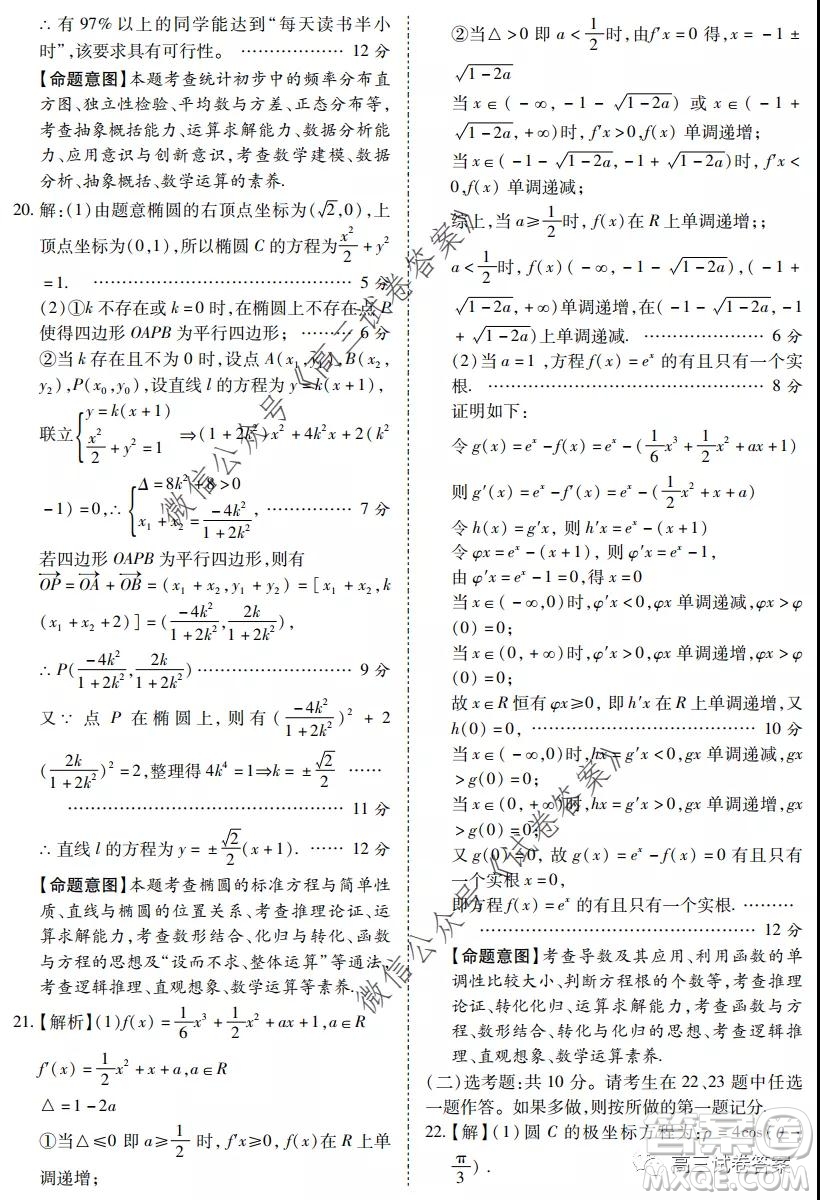 ∴ 有 97% 以上的同学能达到“每天读书半小
时”,该要求具有可行性。 ………………… 12 分
【命题意图】本题考查统计初步中的频率分布直
方图、独立性检验、平均数与方差、正态分布等,
考查抽象概括能力、运算求解能力、数据分析能
力、应用意识与创新意识,考查数学建模、数据
分析、抽象概括、数学运算的素养.
20. 解:(1)由题意椭圆的右顶点坐标为(√2,0),上
顶点坐标为(0,1),所以椭圆 C 的方程为x²/2 + y²
= 1. ………………………………………… 5 分
(2)①k 不存在或 k = 0 时,在椭圆上不存在点 P
使得四边形 OAPB 为平行四边形; ……… 6 分
②当 k 存在且不为 0 时,设点 A(x₁,y₁),B(x₂,
y₂),P(x₀,y₀),设直线 l 的方程为 y = k(x+1),
联立{y = k(x+1) x²/2 + y² = 1 ⇒(1+2k²)x²+4k²x+2(k²
-1)=0,∴{Δ=8k²+8>0 x₁+x₂=-4k²/(1+2k²), …………… 7 分
若四边形 OAPB 为平行四边形,则有
OP→ = OA→ + OB→ = (x₁+x₂,y₁+y₂) = [x₁+x₂,k
(x₁+x₂+2)] = (-4k²/(1+2k²),2k/(1+2k²)),
∴ P(-4k²/(1+2k²),2k/(1+2k²)) ………………………… 9 分
又∵ 点 P 在椭圆上,则有(-4k²/(1+2k²))² + 2
(2k/(1+2k²))² = 2,整理得 4k⁴ = 1⇒k = ±√2/2 ……
………………………………………… 11 分
∴ 直线 l 的方程为 y = ±√2/2(x+1). …… 12 分
【命题意图】本题考查椭圆的标准方程与简单性
质、直线与椭圆的位置关系、考查推理论证、运
算求解能力,考查数形结合、化归与转化、函数
与方程的思想及“设而不求、整体运算”等通法,
考查逻辑推理、直观想象、数学运算等素养.
21.【解析】(1)f(x) = 1/6x³ + 1/2x² + ax + 1,a∈R
f′(x) = 1/2x² + x + a,a∈R
△ = 1 - 2a
①当△≤0 即 a≥1/2 时,f′x≥0,f(x) 在 R 上单
调递增;
②当△>0 即 a<1/2时,由f′x = 0 得,x = -1±
√(1-2a)
当 x∈(-∞,-1-√(1-2a)) 或 x∈(-1+
√(1-2a),+∞)时,f′x>0,f(x) 单调递增;
当 x∈(-1-√(1-2a),-1+√(1-2a))时,f′x<
0,f(x) 单调递减;
综上,当 a≥1/2时,f(x)在 R 上单调递增;;
a<1/2时,f(x)(-∞,-1-√(1-2a)),(-1+
√(1-2a),+∞)单调递增,在(-1-√(1-2a),-1
+√(1-2a))上单调递减. ……………… 6 分
(2)当 a = 1 ,方程 f(x) = eˣ 的有且只有一个实
根. ………………………………… 8 分
证明如下:
令 g(x) = eˣ - f(x) = eˣ - (1/6x³ + 1/2x² + ax + 1)
则 g′(x) = eˣ - f′(x) = eˣ - (1/2x² + x + a)
令 h(x) = g′x, 则 h′x = eˣ - (x+1)
令 φx = eˣ - (x+1), 则 φ′x = eˣ - 1,
由 φ′x = eˣ - 1 = 0,得 x = 0
当 x∈(-∞,0)时,φ′x<0,φx 单调递减,φx>φ
(0) = 0;
当 x∈(0,+∞)时,φ′x>0,φx 单调递增,φx>φ
(0) = 0;
故 x∈R 恒有 φx≥0, 即 h′x 在 R 上单调递增,又
h(0) = 0, ………………………… 10 分
当 x∈(-∞,0)时,hx = g′x<0,gx 单调递减,gx
>g(0) = 0;
当 x∈(0,+∞)时,hx = g′x>0,gx 单调递增,gx>
g(0) = 0;
又 g(0) = 0, 故 g(x) = eˣ - f(x) = 0 有且只有
一个实根 x = 0,
即方程 f(x) = eˣ 的有且只有一个实根. ………
…………………………………… 12 分
【命题意图】考查导数及其应用、利用函数的单
调性比较大小、判断方程根的个数等,考查推理
论证、转化化归、运算求解能力,考查函数与方
程、数形结合、转化与化归的思想、考查逻辑推
理、直观想象、数学运算素养.
(二)选考题:共 10 分。请考生在 22、23 题中任选
一题作答。如果多做,则按所做的第一题记分.
22.【解】(1)圆 C 的极坐标方程为:ρ = 4cos(θ -
π/3).
微信公众号《高三试卷答案》
微信公众号《试卷答案》
高三试卷答案